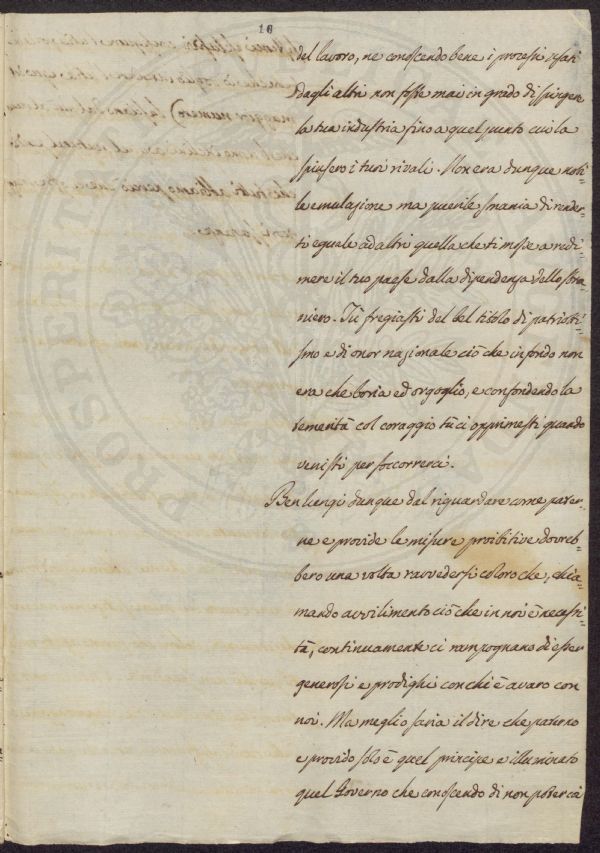 10
del lavoro, ne conoscendo bene i processi usati
dagli altri non fosse mai in grado di spingere
la tua industria fino a quel punto cui la
spinsero i tuoi rivali. Non era dunque nobi=
le emulazione ma puerile smania di render=
ti eguale ad altri quella che ti mosse a redi=
mere il tuo paese dalla dipendenza dello stra=
niero. Tù fregiasti del bel titolo di patriotti=
smo e di onor nazionale ciò che in fondo non
era che boria ed orgoglio, e confondendo la
temerità col coraggio tù ci opprimesti quando
venisti per soccorrerci.
Ben lungi dunque dal riguardare come pater=
ne e provide le misure proibitive dovreb=
bero una volta ravvedersi coloro che, chia=
mando avvilimento ciò che in noi è necessi=
tà, continuamente ci rampognano di esser
generosi e prodighi con chi è avaro con
noi. Ma meglio saria il dire che paterno
e provido solo è quel principe e illuminato
quel Governo che conoscendo di non poter ca